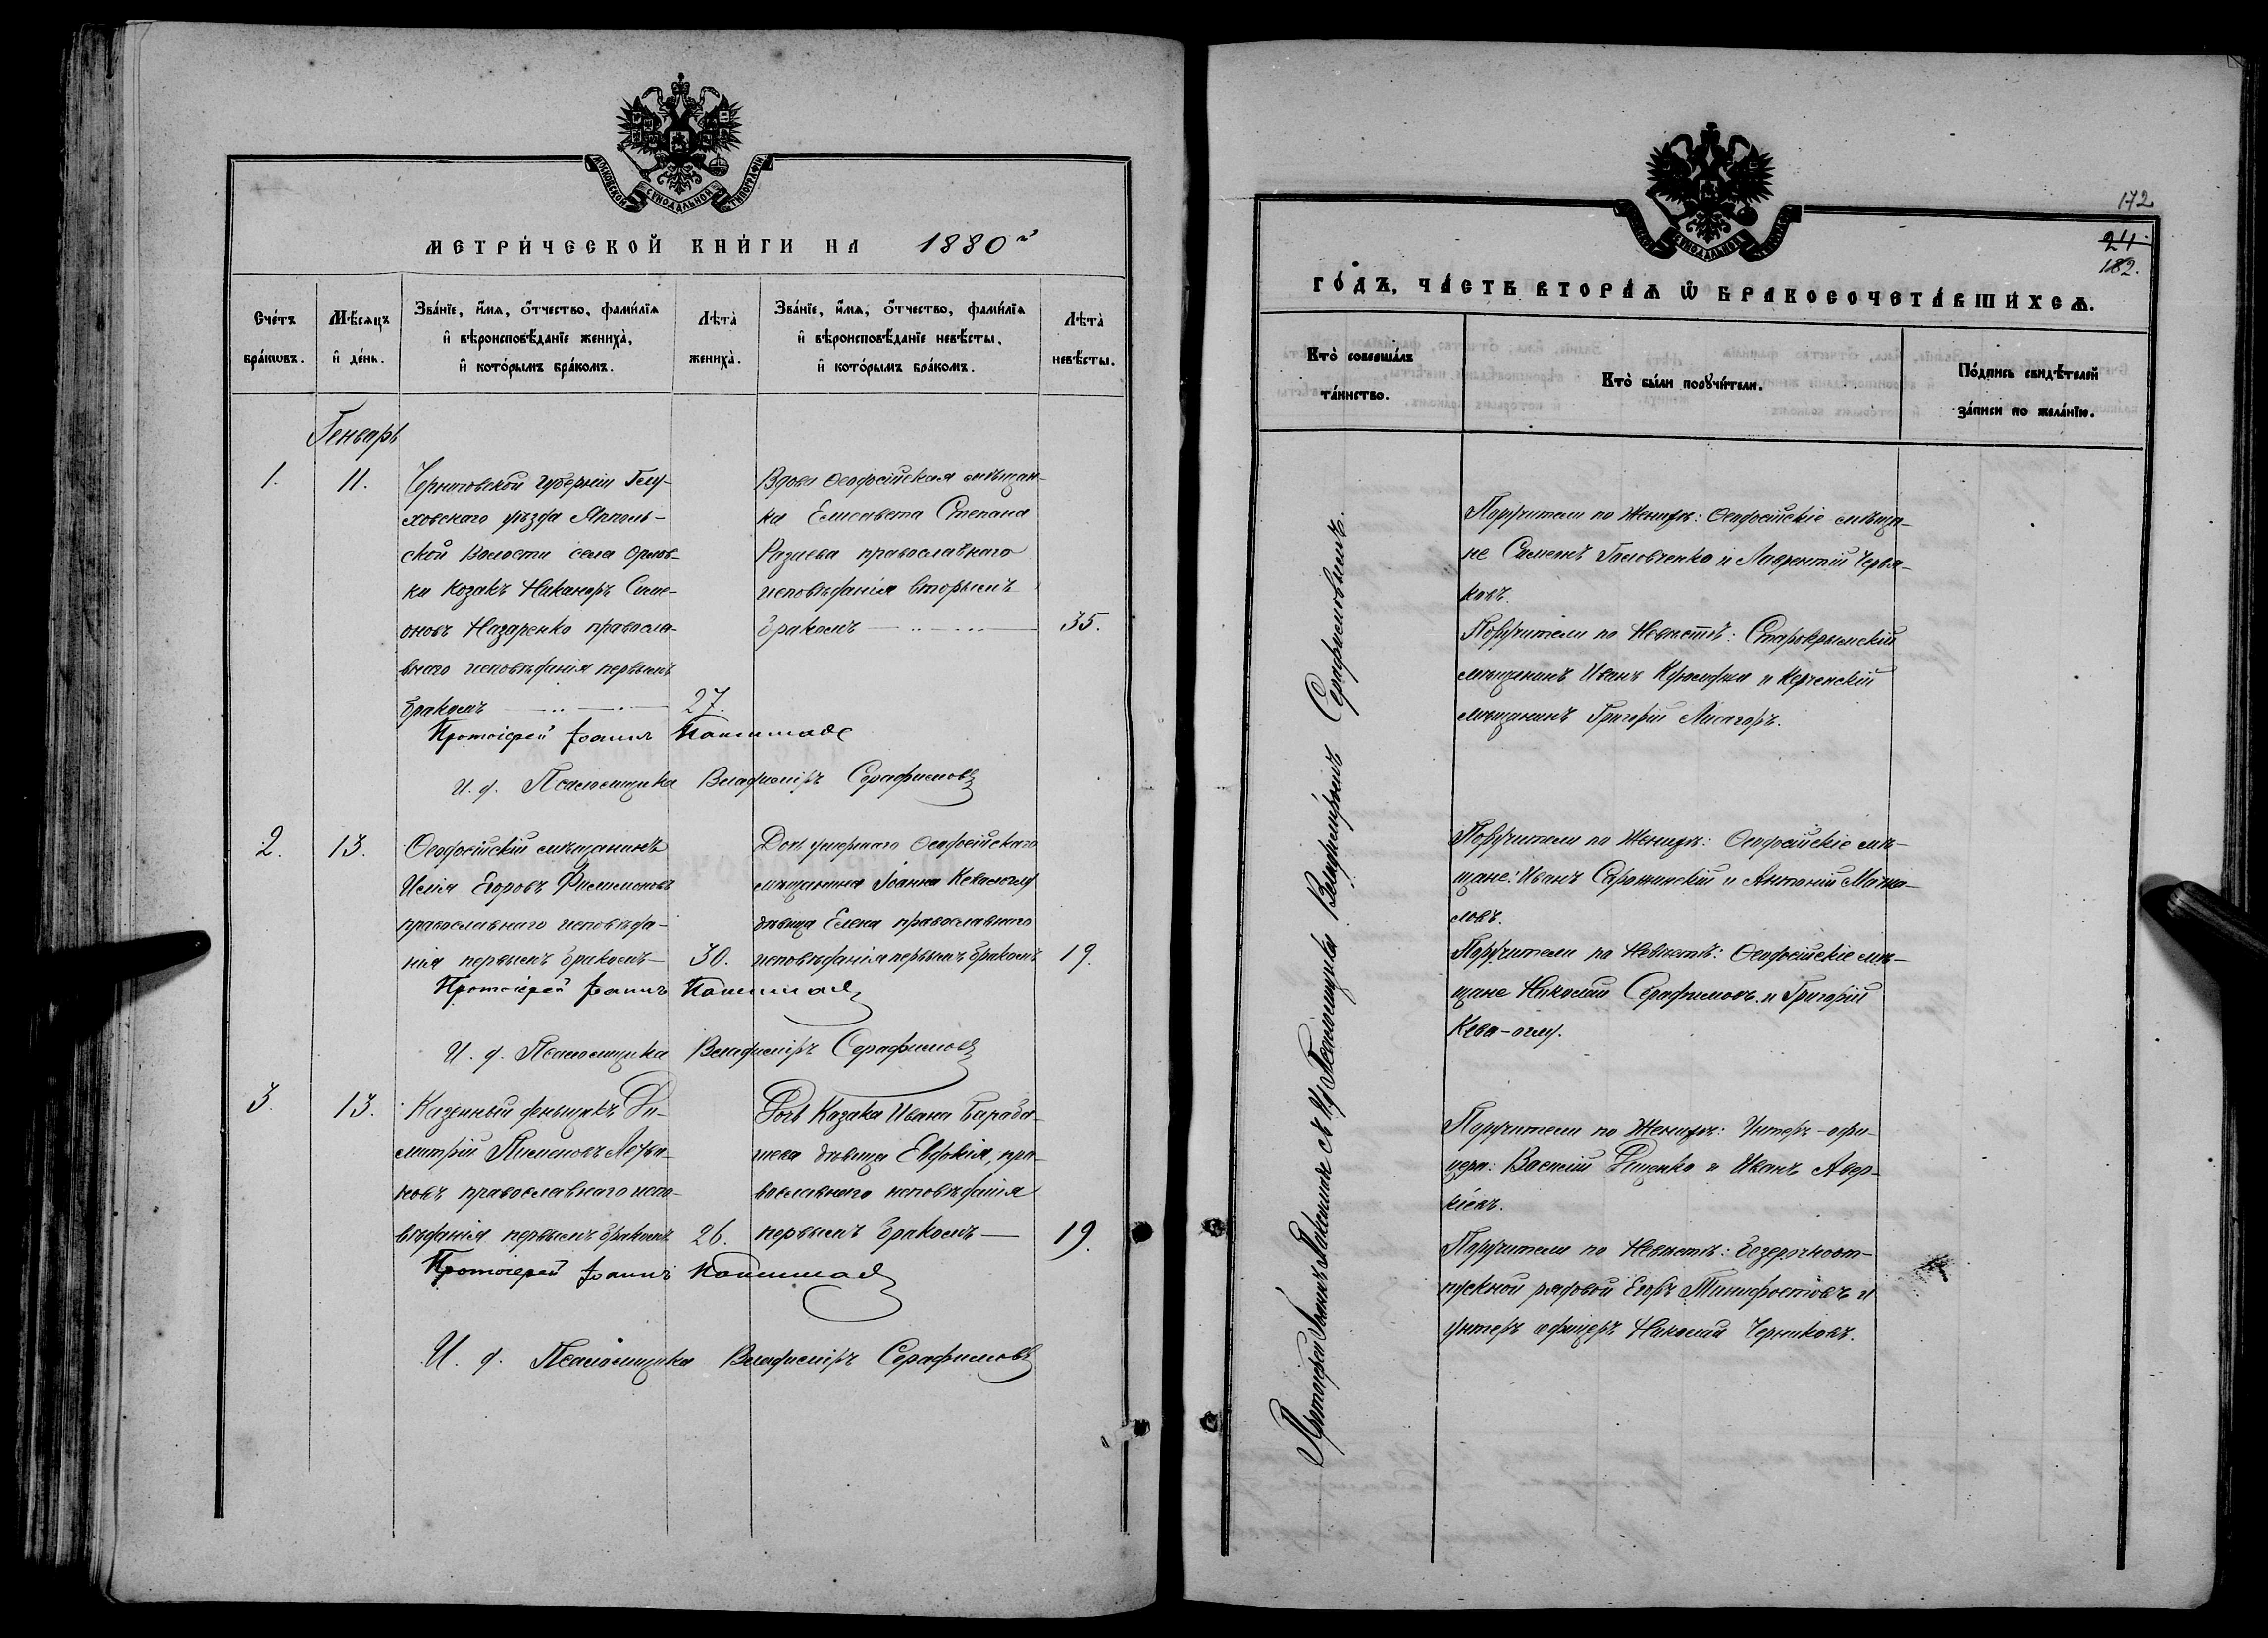 МОСКОВСКОЙ СУНОДАЛЬНОЙ ТИПОГРАФІИ
МЕТРИ́ЧЕСКОЙ КНИ́ГИ НА 1880й
Сче́тъ бра́кωвъ.
Мѣ́сяцъ и҆ де́нь.
Зва́нїе, и҆́мѧ, ѻ҆́тчество, фами́лїѧ
и҆ вѣроисповѣ́данїе жениха̀,
и҆ кото́рымъ бра́комъ.
Лѣта̀ жениха̀.
Зва́нїе, и҆́мѧ, ѻ҆́тчество, фами́лїѧ
и҆ вѣроисповѣ́данїе невѣ́сты,
и҆ кото́рымъ бра́комъ.
Лѣта̀ невѣ́сты.
Генварь
1.
11.
Черниговской губерніи Глу-
ховскаго уѣзда Ямполь-
ской Волости села Орлов-
ки Козакъ Никаноръ Симе-
оновъ Назаренко правосла-
внаго исповѣданія первымъ
бракомъ
27.
Вдова Ѳеодосійская мѣщан-
ка Елисавета Степана
Разиева православнаго
исповѣданія вторымъ
бракомъ
35.
Протоіерей Іоаннъ
И. д. Псаломщика Владиміръ Серафимовъ
2.
13.
Ѳеодосійскій мѣщанинъ
Илія Егоровъ Филимоновъ
православнаго исповѣда-
нія первымъ бракомъ
30.
Дочь умершаго Ѳеодосійскаго
мѣщанина Іоанна Кеваоглу
дѣвица Елена православнаго
исповѣданія первымъ бракомъ
19.
Протоіерей Іоаннъ
И. д. Псаломщика Владиміръ Серафимовъ
3.
13.
Казенный деньщикъ Ди-
митрій Пименовъ
православнаго испо-
вѣданія первымъ бракомъ
26.
Дочь Козака Ивана Бараба-
шева дѣвица Евдокія, пра-
вославнаго исповѣданія
первымъ бракомъ
19.
Протоіерей Іоаннъ
И. д. Псаломщика Владиміръ Серафимовъ
172
24
182.
ГО́ДЪ, ЧА́СТЬ ВТОРА́Ѧ Ѡ҆ БРАКОСОЧЕТА́ВШИХСѦ.
Кто̀ соверша́лъ та́инство.
Кто̀ бы́ли порꙋчи́тели.
По́дпись свидѣ́телей за́писи по жела́нїю.
Протоіерей Іоаннъ съ И.д. Псаломщика Владиміромъ Серафимовымъ.
Поручители по Женихѣ: Ѳеодосійскіе мѣща-
не Симеонъ Головченко и Лаврентій Червя-
ковъ.
Поручители по Невѣстѣ: Старокрымскій
мѣщанинъ Иванъ и Керченскій
мѣщанинъ Григорій Лисагоръ.
Поручители по Женихѣ: Ѳеодосійскіе мѣ-
щане: Иванъ и Антоній
Поручители по Невѣстѣ: Ѳеодосійскіе мѣ-
щане Николай Серафимовъ и Григорій
Кева-оглу.
Поручители по Женихѣ: Унтеръ-офи-
цера: Василій и Иванъ Авер-
кіевъ.
Поручители по Невѣстѣ: безсрочноот-
пускной рядовой Егоръ и
унтеръ офицеръ Николай Черниковъ.